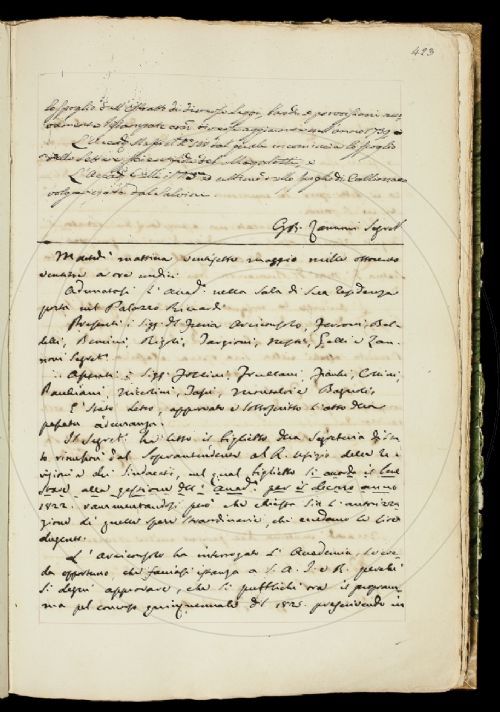 423
lo spoglio dell'Estratto di diverse leggi, bandi e provvisioni
ristampate con aggiunte nell'anno 1739 e
L'Accad. del quale incominciò lo spoglio
delle Lettere scientifiche del Magalotti, e
L'Accad. Colli il 175 e ultimo dello spoglio di Catilinaria
volgarizzata dal Salvini
Gio. Zannoni Segret.
Martedì mattina ventisette maggio mille ottocento
ventitre a ore undici.
Adunatosi l'Accad. nella Sala di sua residenza
posta nel Palazzo Riccardi
Presenti i Sigg. Del Furia Arciconsolo, Ferroni, Bal-
delli, Bencini, Rigoli, Targioni, Nesti, Gelli e Zan-
noni Segret.
Assenti i Sigg. Follini, Frullani, Fiacchi, Collini,
Pauliani, Niccolini, Tassi, Montalvi e Bagnoli.
È stato letto, approvato e sottoscritto l'atto della
passata adunanza.
Il Segret. ha letto il biglietto della Segreteria di Sta-
to rimessoli dal Soprantendente al R. Ufizio delle Re-
visioni e dei Sindacati, nel qual biglietto si
alla gestione dell'Accad. per il decorso anno
1822. rammentandosi però che chiegga sia l'autorizza-
zione di quelle spese straordinarie, che eccedano le lire
dugento.
L'Arciconsolo ha interrogato l'Accademia, se cre-
da opportuno, che facciasi istanza a S. A. I. e R. perché
si degni approvare, che si pubblichi ora il program-
ma pel concorso quinquennale del 1825. prescrivendo in